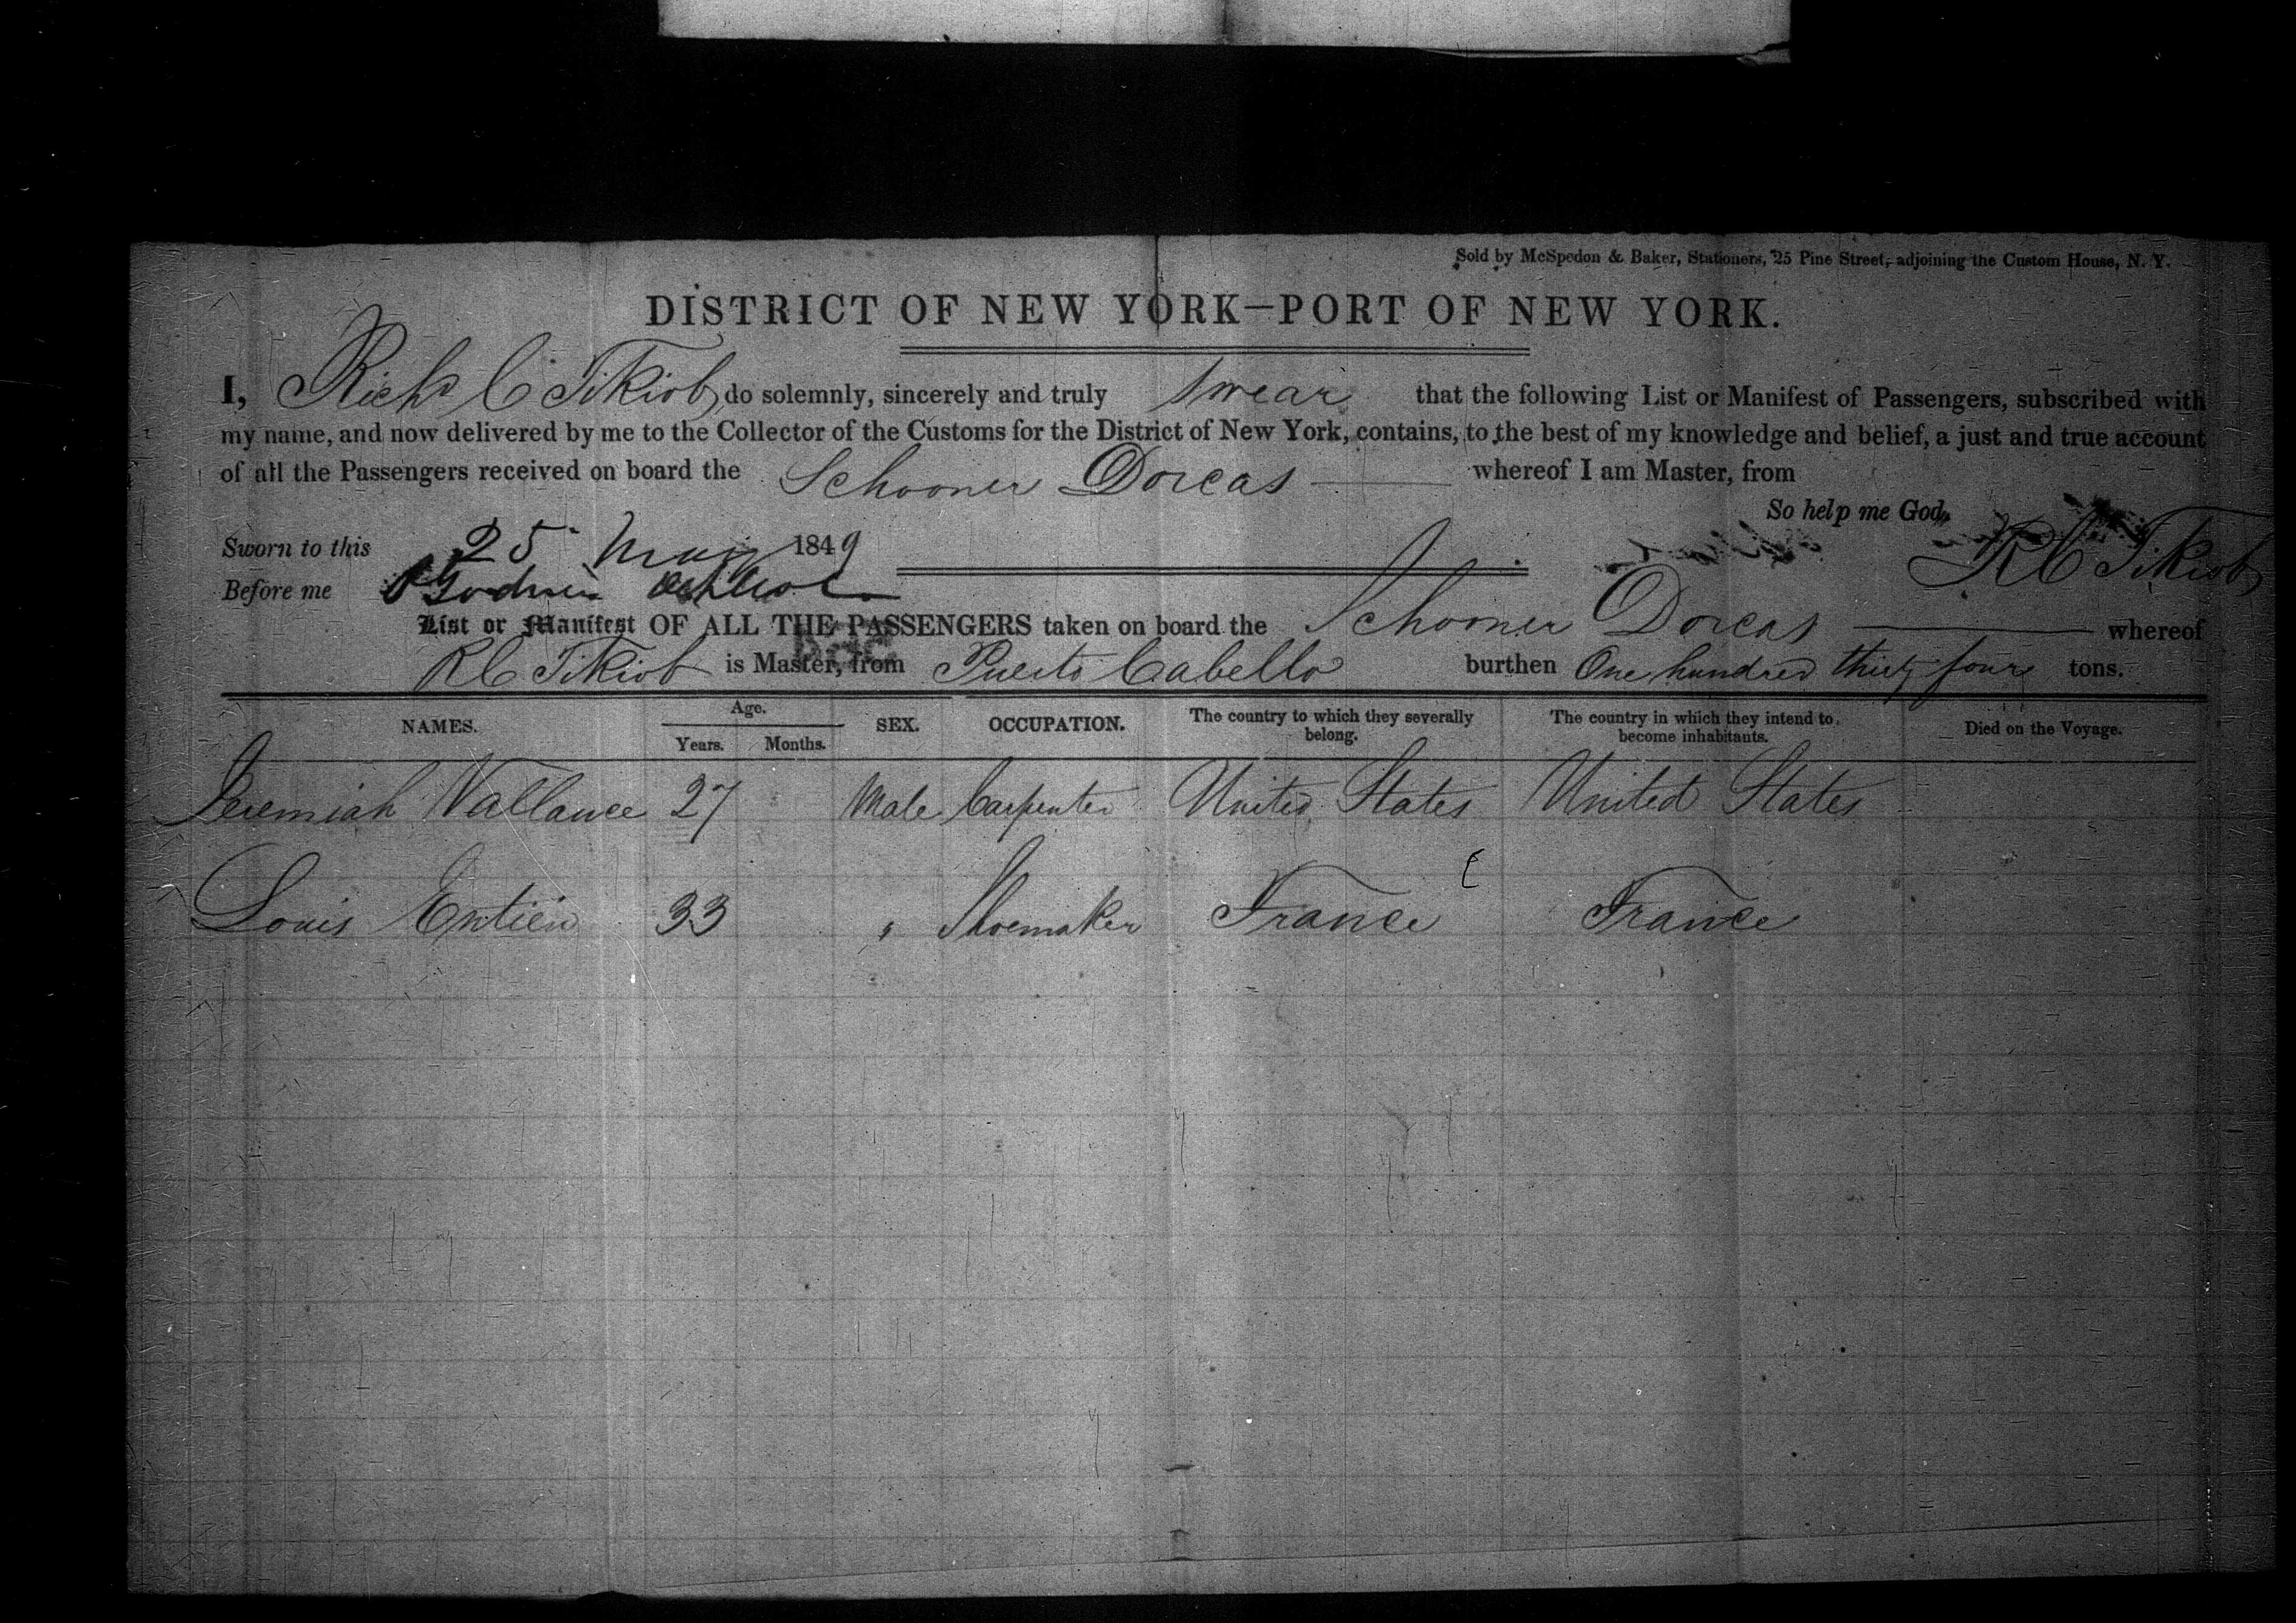 Sold by McSpedon & Baker, Stationers, 25 Pine Street, adjoining the Custom House, N. Y.
DISTRICT OF NEW YORK—PORT OF NEW YORK.
I, Richd C Tikiob do solemnly, sincerely and truly swear that the following List or Manifest of Passengers, subscribed with
my name, and now delivered by me to the Collector of the Customs for the District of New York, contains, to the best of my knowledge and belief, a just and true account
of all the Passengers received on board the Schooner Dorcas whereof I am Master, from
So help me God.
Sworn to this 25 May 1849 R C Tikiob
Before me
List or Manifest OF ALL THE PASSENGERS taken on board the Schooner Dorcas whereof
R C Tikiob is Master, from Puerto Cabello burthen One hundred thirty four tons.
NAMES. Age. Years. Months. SEX. OCCUPATION. The country to which they severally belong. The country in which they intend to become inhabitants. Died on the Voyage.
Jeremiah Vallance 27 Male Carpenter United States United States
Louis Entien 33 " Shoemaker France France